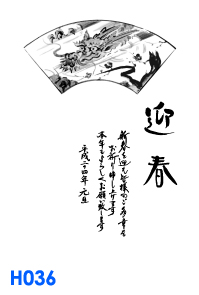 迎春
新春を迎え皆様のご多幸を
お祈り申し上げます
本年もよろしくお願い致します
平成二十四年 元旦
H036